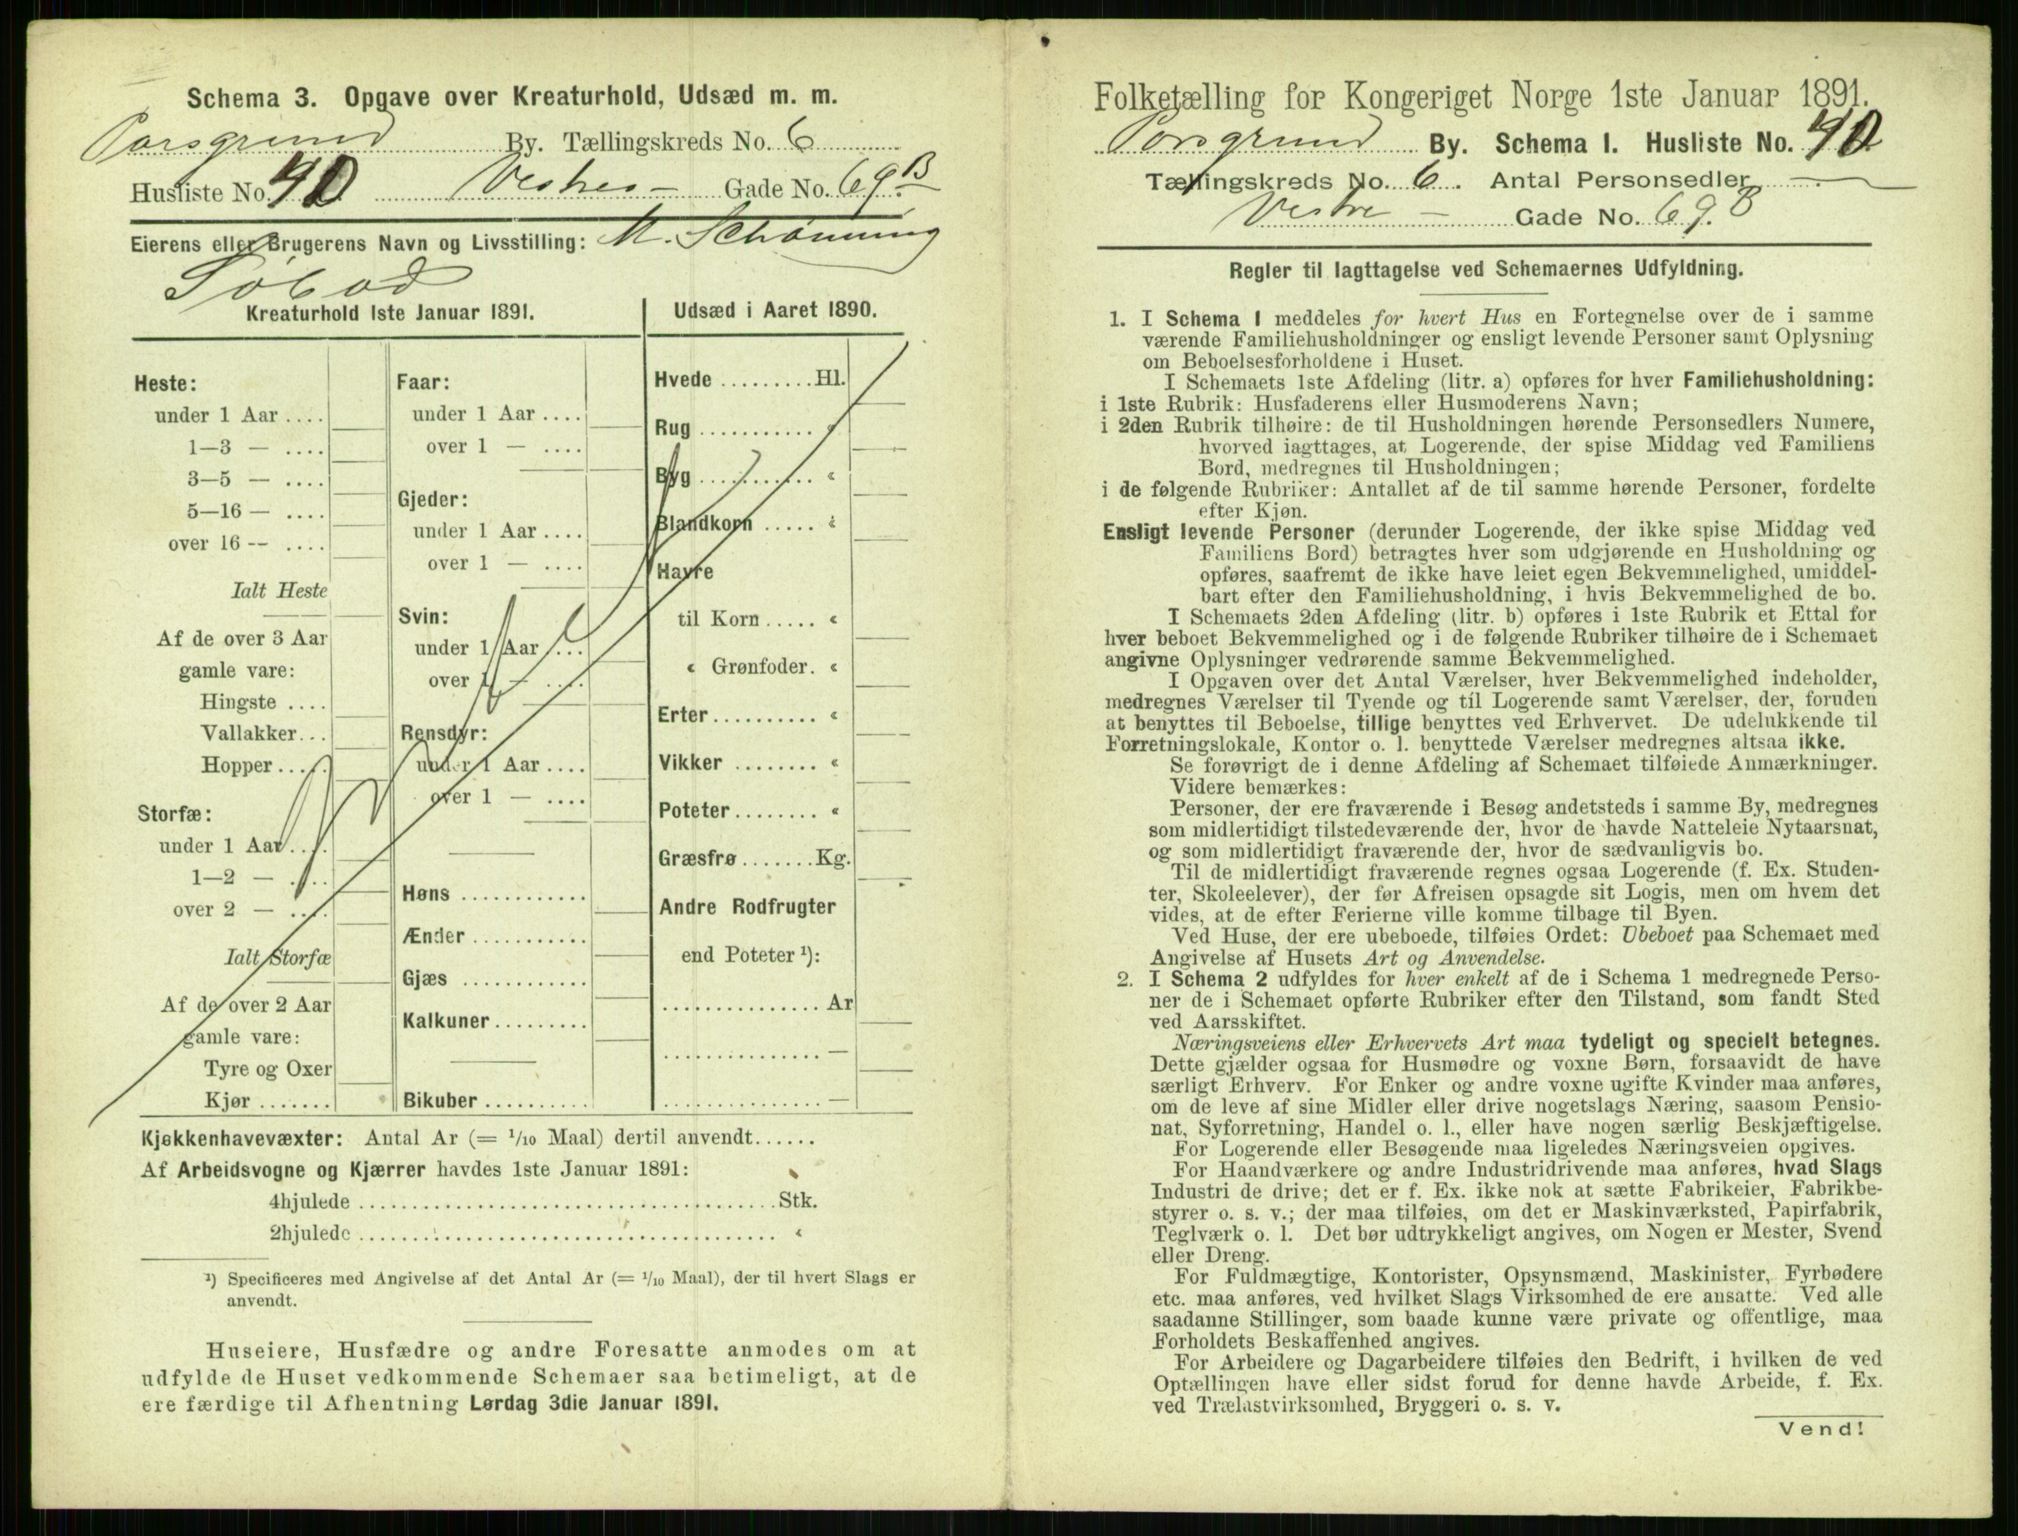 Schema 3. Opgave over Kreaturhold, Udsæd m. m.
Porsgrund By. Tællingskreds No. 6
Husliste No. 40 Vestre — Gade No. 69 B
Eierens eller Brugerens Navn og Livsstilling: M. Schønning
Søbod
Kreaturhold 1ste Januar 1891.
Heste:
under 1 Aar ....
1—3 — ....
3—5 — ....
5—16 — ....
over 16 -- ....
Ialt Heste
Af de over 3 Aar
gamle vare:
Hingste ....
Vallakker...
Hopper .....
Storfæ:
under 1 Aar ....
1—2 — ....
over 2 — ....
Ialt Storfæ
Af de over 2 Aar
gamle vare:
Tyre og Oxer
Kjør .......
Faar:
under 1 Aar ....
over 1 — ....
Gjeder:
under 1 Aar ....
over 1 — ....
Svin:
under 1 Aar ....
over 1 — ....
Rensdyr:
under 1 Aar ....
over 1 — ....
Høns ............
Ænder ...........
Gjæs ............
Kalkuner.........
Bikuber ..........
Udsæd i Aaret 1890.
Hvede .........Hl.
Rug ........... «
Byg ........... «
Blandkorn ..... «
Havre
til Korn ..... «
« Grønfoder. «
Erter.......... «
Vikker ........ «
Poteter........ «
Græsfrø .......Kg.
Andre Rodfrugter
end Poteter ¹):
...............Ar
............... —
............... —
Kjøkkenhavevæxter: Antal Ar (= 1/10 Maal) dertil anvendt......
Af Arbeidsvogne og Kjærrer havdes 1ste Januar 1891:
4hjulede ........................................Stk.
2hjulede ........................................ «
¹) Specificeres med Angivelse af det Antal Ar (= 1/10 Maal), der til hvert Slags er
anvendt.
Huseiere, Husfædre og andre Foresatte anmodes om at
udfylde de Huset vedkommende Schemaer saa betimeligt, at de
ere færdige til Afhentning Lørdag 3die Januar 1891.
Folketælling for Kongeriget Norge 1ste Januar 1891.
Porsgrund By. Schema 1. Husliste No. 40
Tællingskreds No. 6. Antal Personsedler —
Vestre — Gade No. 69. B
Regler til Iagttagelse ved Schemaernes Udfyldning.
1. I Schema 1 meddeles for hvert Hus en Fortegnelse over de i samme
værende Familiehusholdninger og ensligt levende Personer samt Oplysning
om Beboelsesforholdene i Huset.
I Schemaets 1ste Afdeling (litr. a) opføres for hver Familiehusholdning:
i 1ste Rubrik: Husfaderens eller Husmoderens Navn;
i 2den Rubrik tilhøire: de til Husholdningen hørende Personsedlers Numere,
hvorved iagttages, at Logerende, der spise Middag ved Familiens
Bord, medregnes til Husholdningen;
i de følgende Rubriker: Antallet af de til samme hørende Personer, fordelte
efter Kjøn.
Ensligt levende Personer (derunder Logerende, der ikke spise Middag ved
Familiens Bord) betragtes hver som udgjørende en Husholdning og
opføres, saafremt de ikke have leiet egen Bekvemmelighed, umiddel-
bart efter den Familiehusholdning, i hvis Bekvemmelighed de bo.
I Schemaets 2den Afdeling (litr. b) opføres i 1ste Rubrik et Ettal for
hver beboet Bekvemmelighed og i de følgende Rubriker tilhøire de i Schemaet
angivne Oplysninger vedrørende samme Bekvemmelighed.
I Opgaven over det Antal Værelser, hver Bekvemmelighed indeholder,
medregnes Værelser til Tyende og til Logerende samt Værelser, der, foruden
at benyttes til Beboelse, tillige benyttes ved Erhvervet. De udelukkende til
Forretningslokale, Kontor o. l. benyttede Værelser medregnes altsaa ikke.
Se forøvrigt de i denne Afdeling af Schemaet tilføiede Anmærkninger.
Videre bemærkes:
Personer, der ere fraværende i Besøg andetsteds i samme By, medregnes
som midlertidigt tilstedeværende der, hvor de havde Natteleie Nytaarsnat,
og som midlertidigt fraværende der, hvor de sædvanligvis bo.
Til de midlertidigt fraværende regnes ogsaa Logerende (f. Ex. Studen-
ter, Skoleelever), der før Afreisen opsagde sit Logis, men om hvem det
vides, at de efter Ferierne ville komme tilbage til Byen.
Ved Huse, der ere ubeboede, tilføies Ordet: Ubeboet paa Schemaet med
Angivelse af Husets Art og Anvendelse.
2. I Schema 2 udfyldes for hver enkelt af de i Schema 1 medregnede Perso-
ner de i Schemaet opførte Rubriker efter den Tilstand, som fandt Sted
ved Aarsskiftet.
Næringsveiens eller Erhvervets Art maa tydeligt og specielt betegnes.
Dette gjælder ogsaa for Husmødre og voxne Børn, forsaavidt de have
særligt Erhverv. For Enker og andre voxne ugifte Kvinder maa anføres,
om de leve af sine Midler eller drive nogetslags Næring, saasom Pensio-
nat, Syforretning, Handel o. l., eller have nogen særlig Beskjæftigelse.
For Logerende eller Besøgende maa ligeledes Næringsveien opgives.
For Haandværkere og andre Industridrivende maa anføres, hvad Slags
Industri de drive; det er f. Ex. ikke nok at sætte Fabrikeier, Fabrikbe-
styrer o. s. v.; der maa tilføies, om det er Maskinværksted, Papirfabrik,
Teglværk o. l. Det bør udtrykkeligt angives, om Nogen er Mester, Svend
eller Dreng.
For Fuldmægtige, Kontorister, Opsynsmænd, Maskinister, Fyrbødere
etc. maa anføres, ved hvilket Slags Virksomhed de ere ansatte. Ved alle
saadanne Stillinger, som baade kunne være private og offentlige, maa
Forholdets Beskaffenhed angives.
For Arbeidere og Dagarbeidere tilføies den Bedrift, i hvilken de ved
Optællingen have eller sidst forud for denne havde Arbeide, f. Ex.
ved Trælastvirksomhed, Bryggeri o. s. v.
Vend!